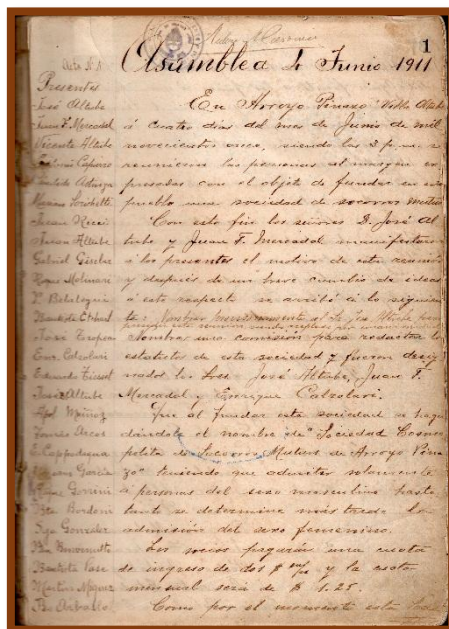 1
Asamblea 4 Junio 1911
Acta Nº 1
Presentes
José Altube
Juan F. Mercadal
Vicente Altube
Juan Ricci
Juan Altube
Gabriel
Roque Molinari
P.
Bautista
José
Enr. Calzolari
Eduardo
José Altube
Muñoz
Tomás Arcos
Garcia
Bordoni
Gonzalez
Benvenuto
Bautista
Martin
En Arroyo Pinazo Villa Altube
á cuatro dias del mes de Junio de mil
novecientos once, siendo las 3 p.m. se
reunieron las personas al margen ex-
presadas con el objeto de fundar en este
pueblo una sociedad de socorros mutuos
Con este fin los señores D. José Al-
tube y Juan F. Mercadal manifestaron
á los presentes el motivo de esta reunión
y después de un breve cambio de ideas
á este respecto se arribó á lo siguien-
te: Nombrar al Sr. José Altube para
Nombrar una comisión para redactar los
estatutos de esta sociedad y fueron desig-
nados los Sres. José Altube, Juan F.
Mercadal y Enrique Calzolari.
Que al fundar esta sociedad se haga
dándole el nombre de "Sociedad Cosmo-
polita de Socorros Mutuos de Arroyo Pina-
zo" teniendo que admitir solamente
a personas del sexo masculino hasta
tanto se determine más tarde la
admisión del sexo femenino.
Los socios pagarán una cuota
de ingreso de dos $ m/n y la cuota
mensual será de $ 1.25.
Como por el momento esta